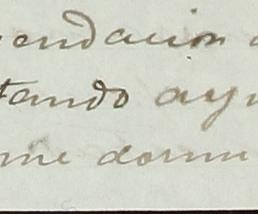 endacion
tando ay
me dormi